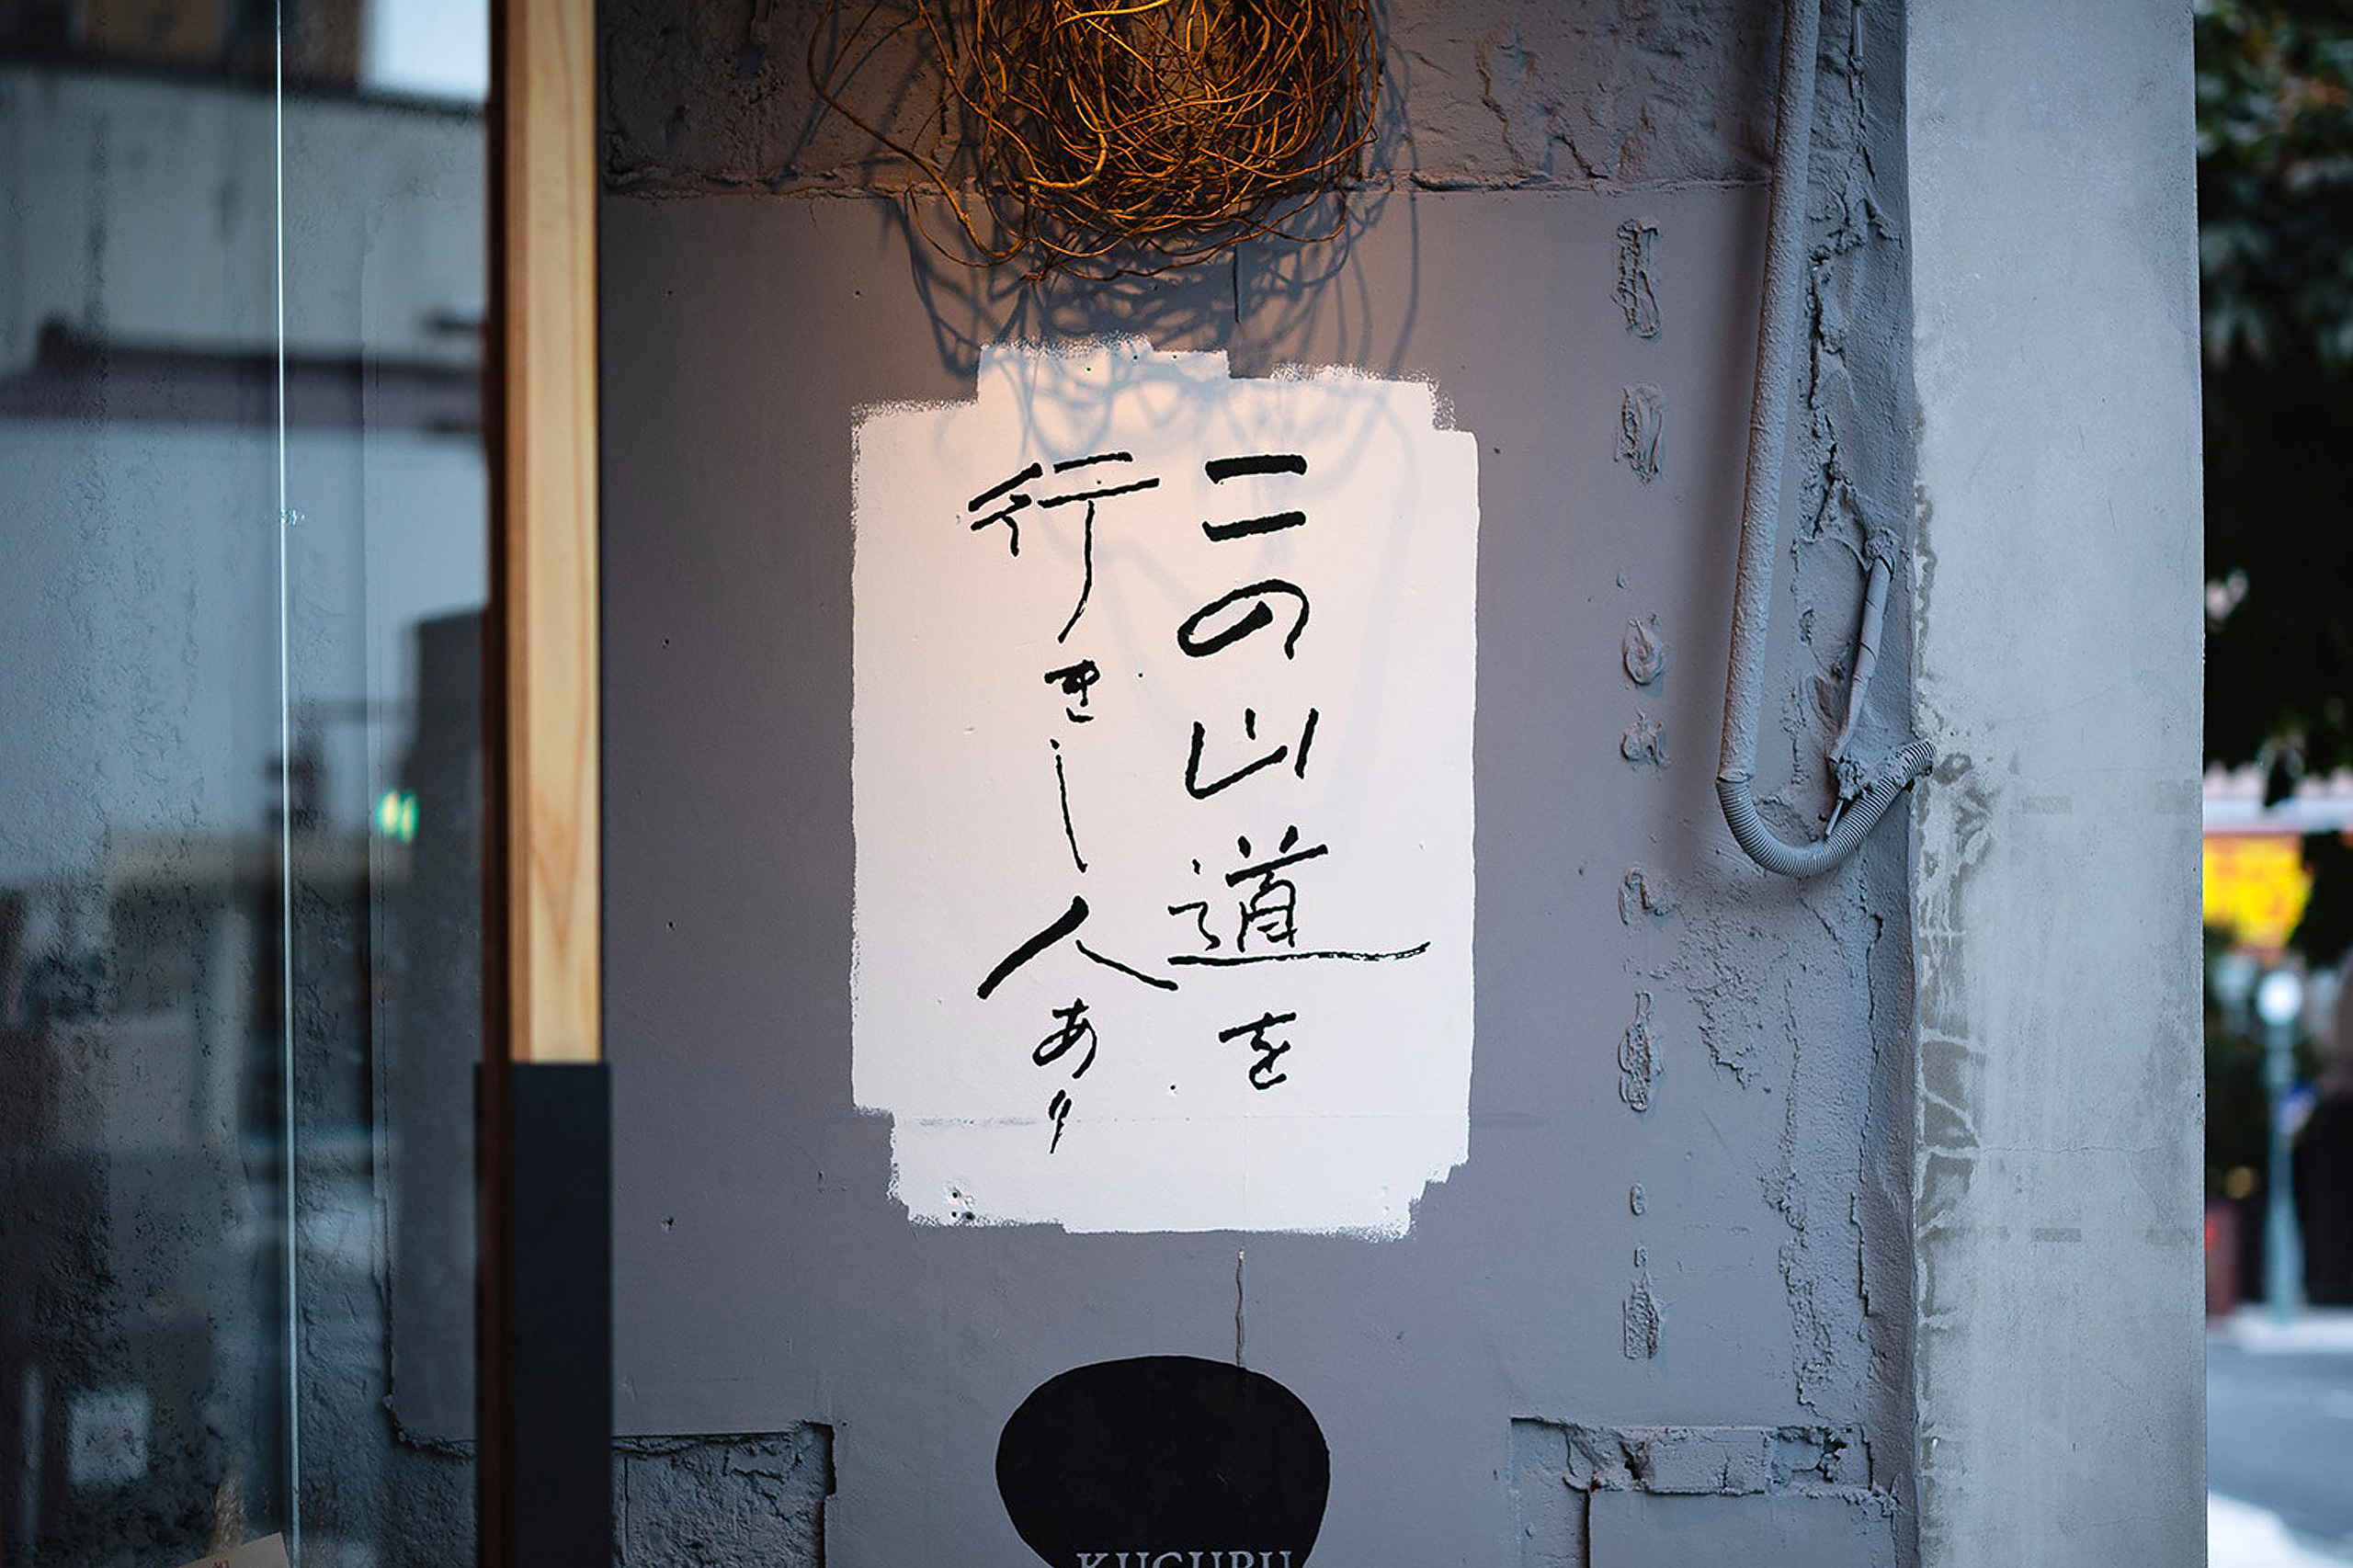 この山道を
行きし人あり
KUGURU